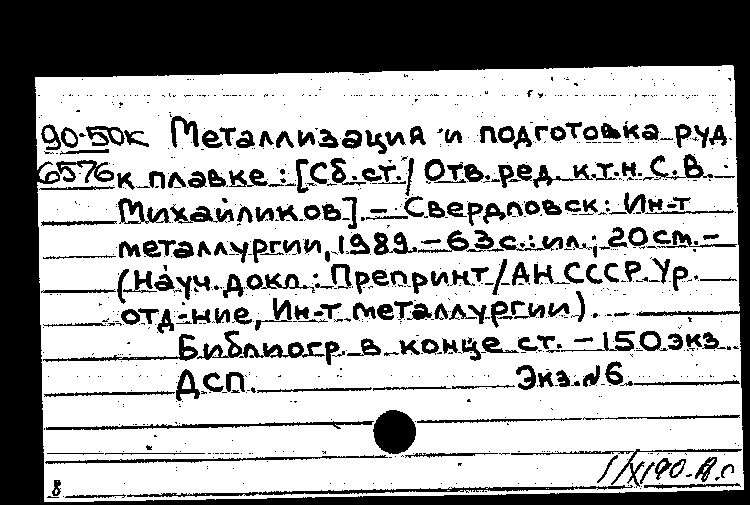 90-50к Металлизация и подготовка руд
6576 к плавке : [Сб.ст./ Отв.ред. к.т.н. С.В.
Михайликов]. – Свердловск: Ин-т
металлургии, 1989. – 63 с.: ил.; 20 см. –
(Науч. докл.: Препринт/АН СССР Ур.
отд-ние, Ин-т металлургии).
Библиогр. в конце ст. – 150 экз
ДСП. Экз.№6.
8